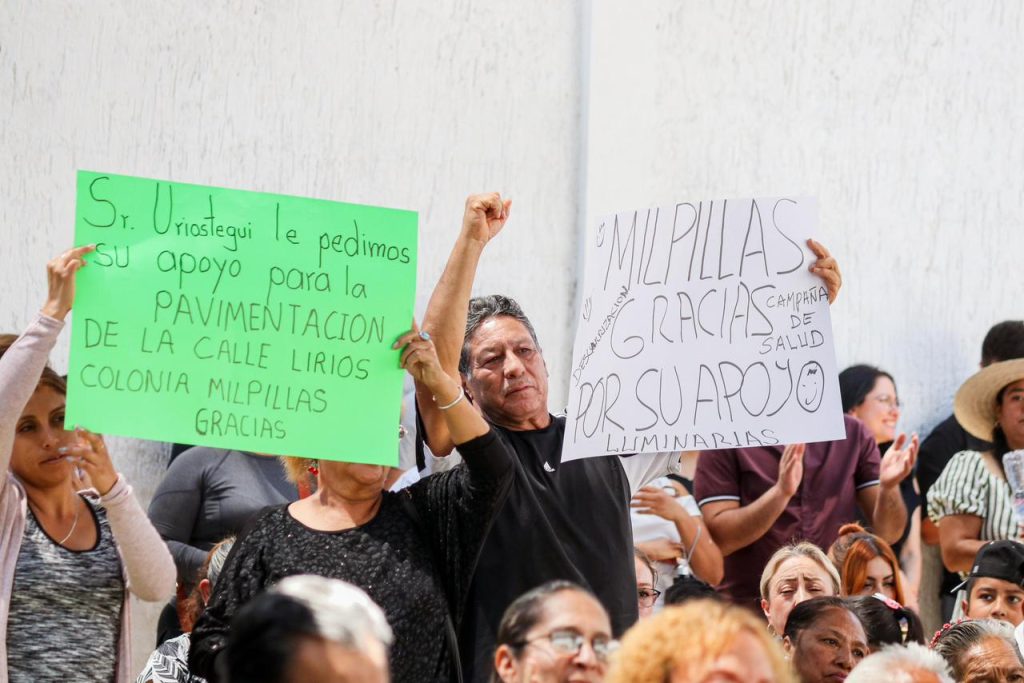 Sr. Uriostegui le pedimos
su apoyo para la
PAVIMENTACION
DE LA CALLE LIRIOS
COLONIA MILPILLAS
GRACIAS
MILPILLAS
DESCACHARRIZACION
GRACIAS
CAMPAÑA
DE
SALUD
POR SU APOYO
LUMINARIAS